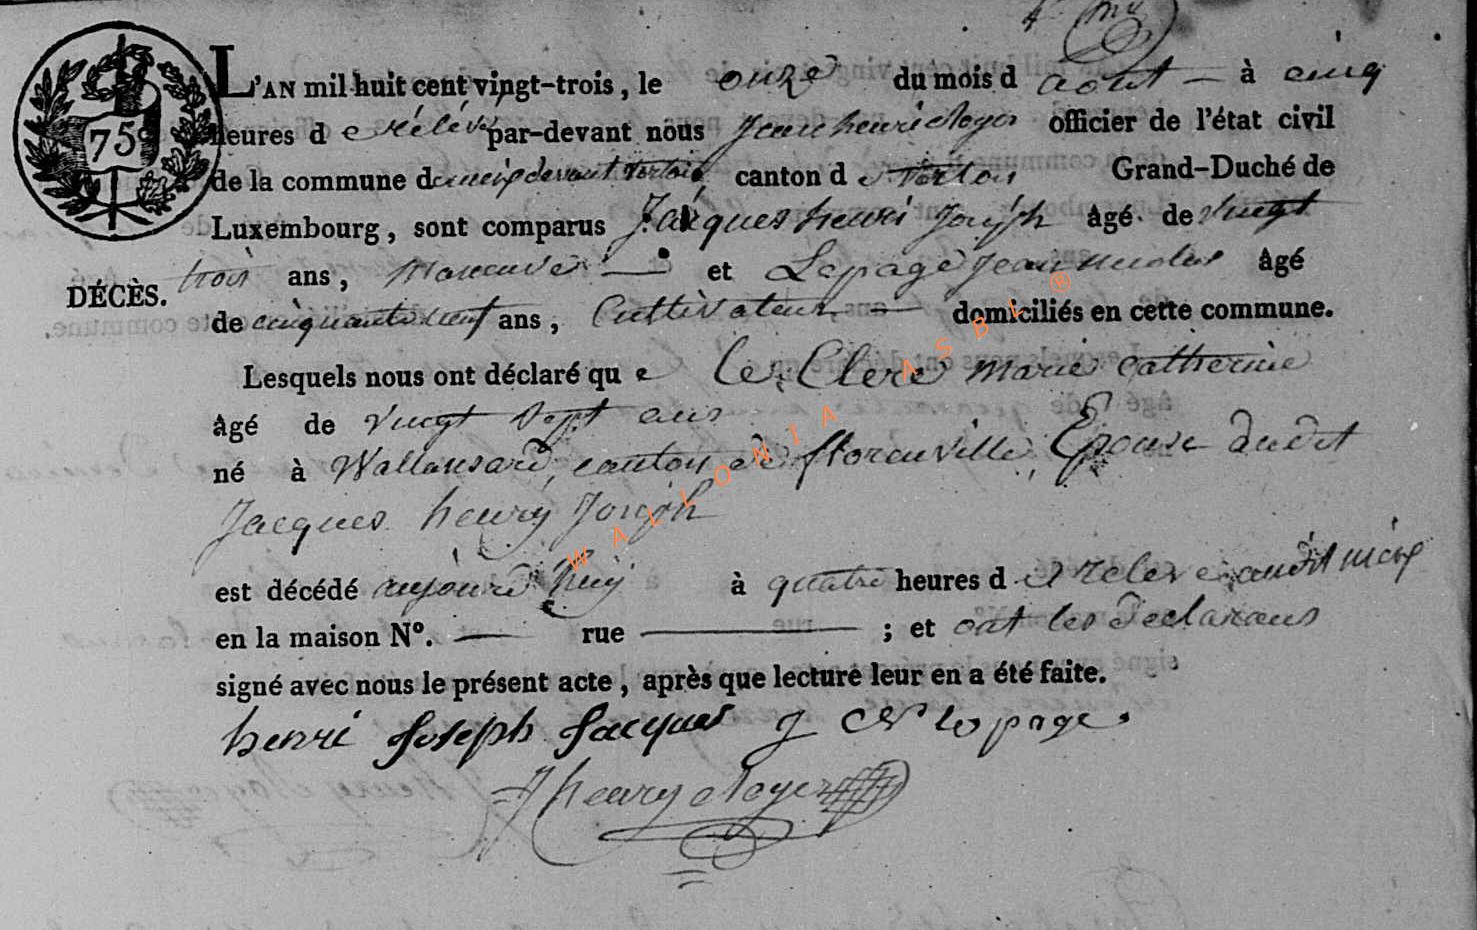 75
L'AN mil huit cent vingt-trois, le onze du mois d aout à cinq
heures d e rélévé par-devant nous Jean henri Noyer officier de l'état civil
de la commune de meix devant virton canton d e virton Grand-Duché de
Luxembourg, sont comparus Jacques henri Joseph âgé de vingt
trois ans, et Lepage Jean nicolas âgé
DÉCÈS.
de cinquante neuf ans, Cultivateur domiciliés en cette commune.
Lesquels nous ont déclaré qu e le Clere marie catherine
âgé de vingt sept ans
né à Wallansard, canton de florenville, Epouse dudit
Jacques henry Joseph
est décédé aujourd'huy à quatre heures d e releve audit meix
en la maison N°. — rue — ; et ont les declarans
signé avec nous le présent acte, après que lecture leur en a été faite.
henri Joseph Jacques j lepage
J henry Noyer
WALLONIA ASBL ®